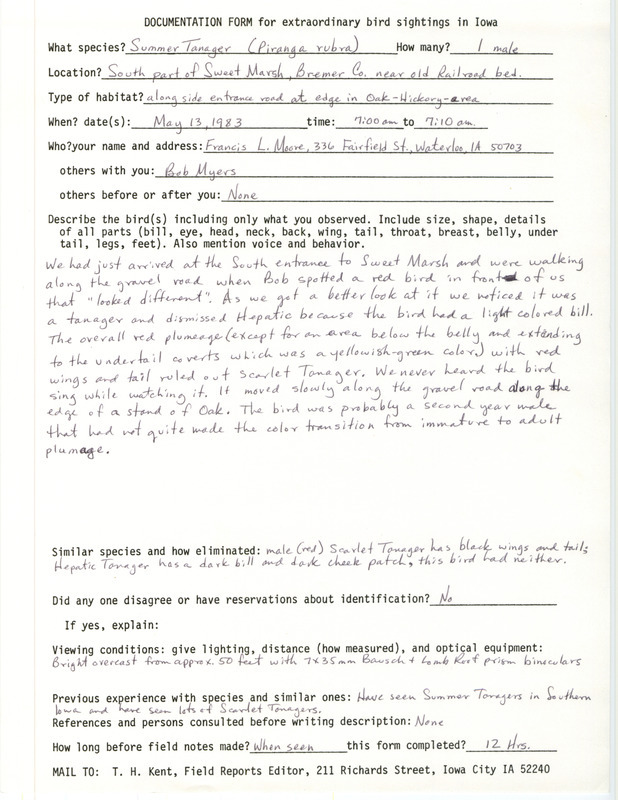 DOCUMENTATION FORM for extraordinary bird sightings in Iowa
What species? Summer Tanager (Piranga rubra) How many? 1 male
Location? South part of Sweet Marsh, Bremer Co. near old Railroad bed.
Type of habitat? along side entrance road at edge in Oak-Hickory-area
When? date(s): May 13, 1983 time: 7:00 am to 7:10 am.
Who?your name and address: Francis L. Moore, 336 Fairfield St., Waterloo, IA 50703
others with you: Bob Myers
others before or after you: None
Describe the bird(s) including only what you observed. Include size, shape, details
of all parts (bill, eye, head, neck, back, wing, tail, throat, breast, belly, under
tail, legs, feet). Also mention voice and behavior.
We had just arrived at the South entrance to Sweet Marsh and were walking
along the gravel road when Bob spotted a red bird in front of us
that "looked different". As we got a better look at it we noticed it was
a tanager and dismissed Hepatic because the bird had a light colored bill.
The overall red plumeage (except for an area below the belly and extending
to the undertail coverts which was a yellowish-green color) with red
wings and tail ruled out Scarlet Tanager. We never heard the bird
sing while watching it. It moved slowly along the gravel road along the
edge of a stand of Oak. The bird was probably a second year male
that had not quite made the color transition from immature to adult
plumage.
Similar species and how eliminated: male (red) Scarlet Tanager has black wings and tail;
Hepatic Tanager has a dark bill and dark cheek patch, this bird had neither.
Did any one disagree or have reservations about identification? No
If yes, explain:
Viewing conditions: give lighting, distance (how measured), and optical equipment:
Bright overcast from approx. 50 feet with 7X35mm Bausch + Lomb Roof prism binoculars
Previous experience with species and similar ones: Have seen Summer Tanagers in Southern
Iowa and have seen lots of Scarlet Tanagers.
References and persons consulted before writing description: None
How long before field notes made? When seen this form completed? 12 Hrs.
MAIL TO: T. H. Kent, Field Reports Editor, 211 Richards Street, Iowa City IA 52240